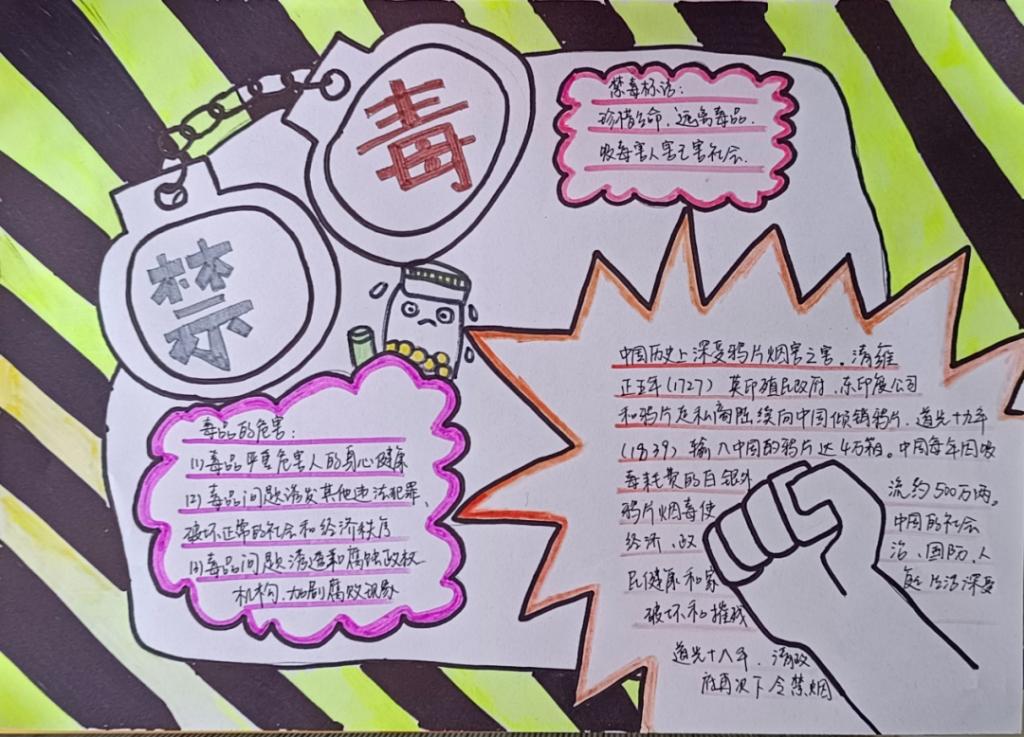 禁毒
禁毒标语：
珍惜生命，远离毒品．
吸毒害人害己害社会．
毒品的危害：
(1)毒品严重危害人的身心健康
(2)毒品问题诱发其他违法犯罪、
破坏正常的社会和经济秩序
(3)毒品问题渗透和腐蚀政权
机构、加剧腐败现象
中国历史上深受鸦片烟害之害。清雍
正五年(1727) 英印殖民政府、东印度公司
和鸦片走私商陆续向中国倾销鸦片．道光十九年
(1839) 输入中国的鸦片达4万箱。中国每年因吸
毒耗费的白银外流约500万两。
鸦片烟毒使中国的社会
经济、政治、国防、人
民健康和家庭生活深受
破坏和摧残
道光十八年．清政
府再次下令禁烟